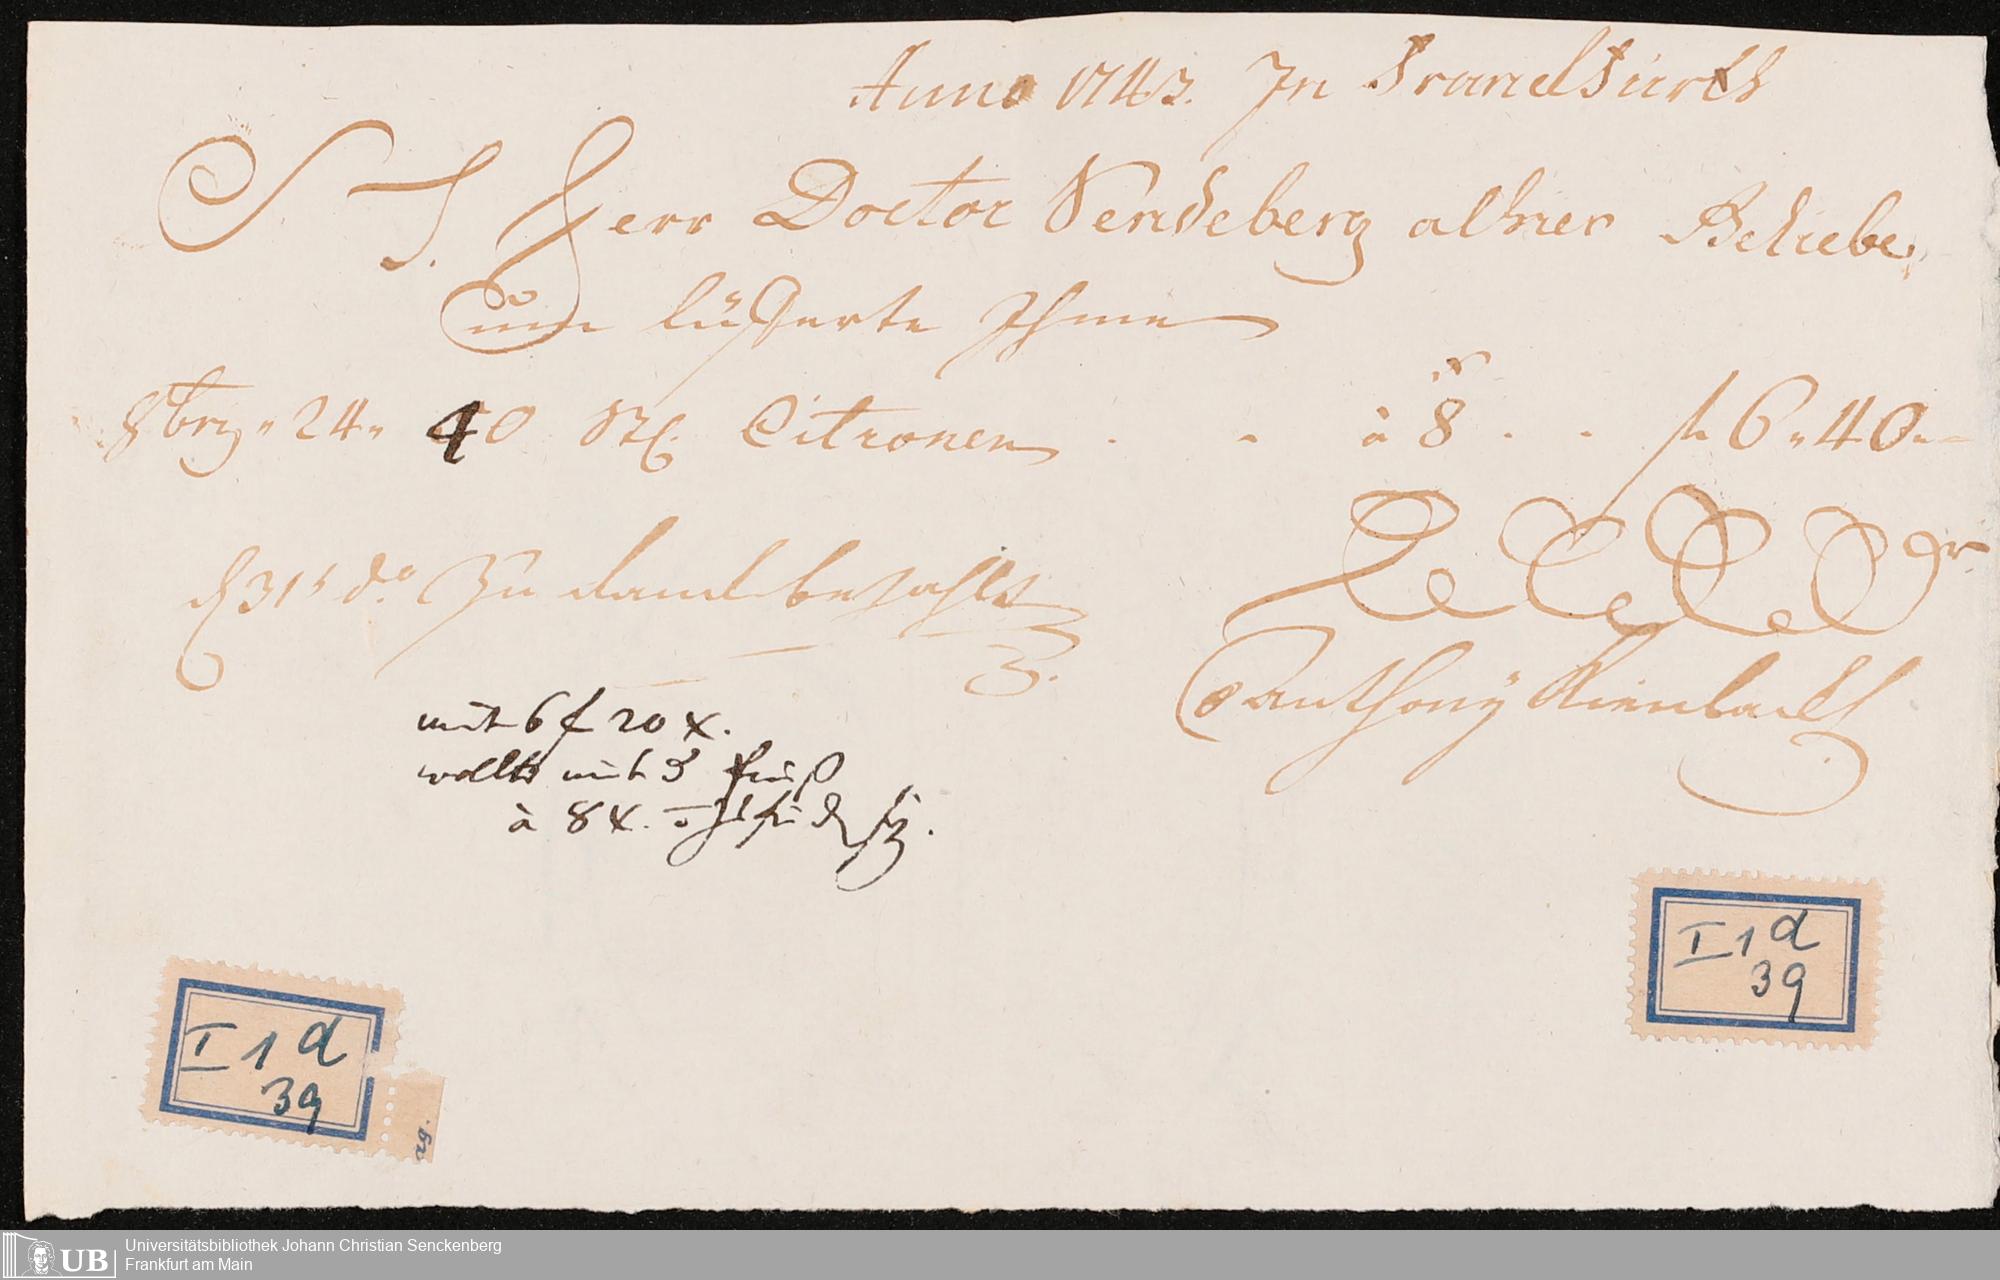 Anno 1743. In Franckfurth
S T. Herr Doctor Senckeberg alhier Beliebe
um lüfferte Ihme
8brg " 24 " 40 Stl. Citronen . . à 8 x . . fl 6 " 40 "
d 31t do. Zu danck bezahlt
Anthony
mit 6 f 20 x.
wollte mit 3
à 8 x.
I 1 d
39
I 1 d
39
ag.
UB
Universitätsbibliothek Johann Christian Senckenberg
Frankfurt am Main